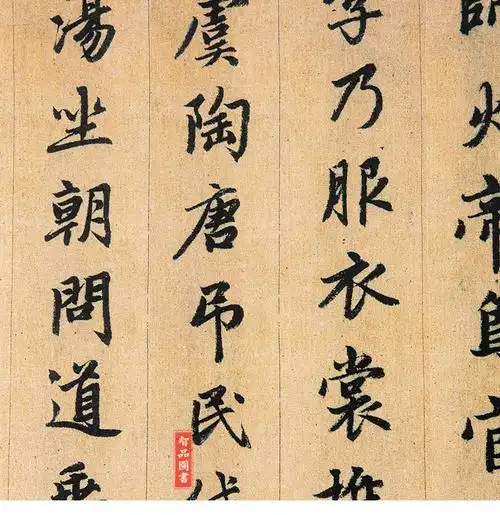 師火帝鳥官
字乃服衣裳推
虞陶唐吊民伐
湯坐朝問道垂
智品圖書